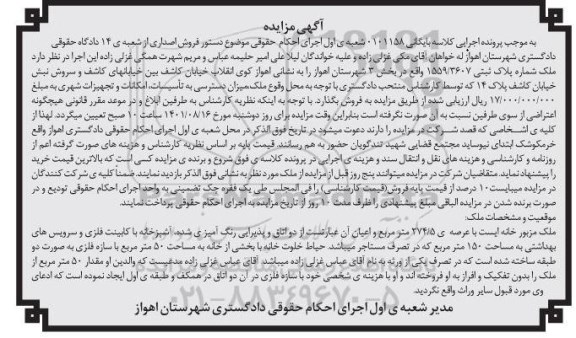 آگهی مزایده
به موجب پرونده اجرایی کلاسه بایگانی ۰۱۰۱۱۵۸ شعبه ی اول اجرای احکام حقوقی موضوع دستور فروش اصداری از شعبه ی ۱۴ دادگاه حقوقی
دادگستری شهرستان اهواز له خواهان آقای مکی غزلی زاده و علیه خواندگان لیلا علی امیر حلیمه عباس و مریم شهرت همگی غزلی زاده این اجرا در نظر دارد
ملک شماره پلاک ثبتی ۱۵۵۹/۳۶۰۷ واقع در بخش ۳ شهرستان اهواز را به نشانی اهواز کوی انقلاب خیابان کاشف بین خیابانهای کاشف و سروش نبش
خیابان کاشف پلاک ۱۴ که توسط کارشناس منتخب دادگستری با توجه به محل وقوع ملک میزان دسترسی به تأسیسات، امکانات و تجهیزات شهری به مبلغ
۱۷/۰۰۰/۰۰۰/۰۰۰ ریال ارزیابی شده از طریق مزایده به فروش بگذارد. با توجه به اینکه نظریه کارشناس به طرفین ابلاغ و در موعد مقرر قانونی هیچگونه
اعتراضی از سوی طرفین نسبت به آن صورت نگرفته است بنابراین وقت مزایده برای روز دوشنبه مورخ ۱۴۰۱/۰۸/۱۶ ساعت ۱۰ صبح تعیین میگردد. لهذا از
کلیه ی اشخاصی که قصد شرکت در مزایده را دارند دعوت میشود در تاریخ فوق الذکر در محل شعبه ی اول اجرای احکام حقوقی دادگستری اهواز واقع
خرمکوشک ابتدای نیوساید مجتمع قضایی شهید تندگویان حضور به هم رسانند. قیمت پایه بر اساس نظریه کارشناس و هزینه های صورت گرفته اعم از
روزنامه و کارشناسی و هزینه های نقل و انتقال سند و هزینه ی اجرایی بر پرونده کلاسه ی فوق شروع و برنده ی مزایده کسی است که بالاترین قیمت خرید
را پیشنهاد نماید. متقاضیان شرکت در مزایده میتوانند پنج روز قبل از مزایده از ملک مورد نظر به نشانی فوق الذکر بازدید نمایند. ضمناً کلیه ی شرکت کنندگان
در مزایده میبایست ۱۰ درصد از قیمت پایه فروش (قیمت کارشناسی) را فی المجلس طی یک فقره چک تضمینی به واحد اجرای احکام حقوقی تودیع و در
صورت برنده شدن در مزایده الباقی مبلغ پیشنهادی را ظرف مدت ۱۰ روز از تاریخ مزایده به اجرای احکام حقوقی پرداخت نمایند.
موقعیت و مشخصات ملک:
ملک مزبور خانه ایست با عرصه ی ۲۷۴/۵ متر مربع و اعیان آن عبارتست از دو اتاق و پذیرایی رنگ آمیزی شده، آشپزخانه با کابینت فلزی و سرویس های
بهداشتی به مساحت ۱۵۰ متر مربع که در تصرف مستاجر میباشد. حیاط خلوت خانه با بخشی از خانه به مساحت ۵۰ متر مربع با سازه فلزی به صورت دو
طبقه ساخته شده است که در تصرف یکی از ورثه به نام آقای عباس غزلی زاده میباشد. آقای عباس غزلی زاده مدعیست که والدین او مقدار ۵۰ متر مربع از
ملک را بدون تفکیک و افراز به او فروخته اند و او با هزینه ی شخصی خود با سازه فلزی در آن دو اتاق در همکف و طبقه ی اول ایجاد نموده است که ادعای
وی مورد قبول سایر وراث واقع نگردید.
مدیر شعبه ی اول اجرای احکام حقوقی دادگستری شهرستان اهواز
۰۲۱-۸۸۳۴۹۶۷۰-۵